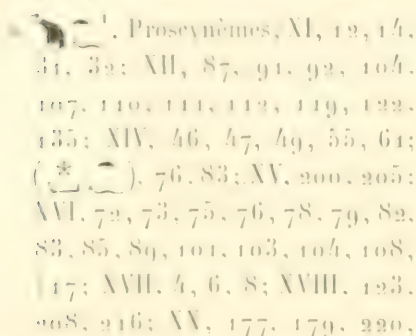 Proscynèmes, XI, 12, 14,
31, 32; XII, 87, 91, 92, 104,
107, 110, 111, 112, 119, 122,
135; XIV, 46, 47, 49, 55, 61;
76, 83; XV, 200, 205;
XVI, 72, 73, 75, 76, 78, 79, 82,
83, 85, 89, 101, 103, 104, 108,
117; XVII, 4, 6, 8; XVIII, 123,
208, 216; XX, 177, 179, 220,